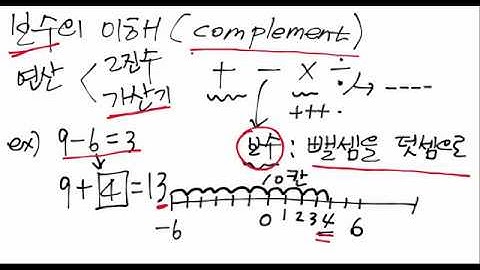 보수의 이해 (complement)
연산 < 2진수 가산기
+ - × ÷ → ----
+++.
ex) 9-6=3
보수 : 뺄셈을 덧셈으로
9+4=13
10칸
-6 0 1 2 3 4 6